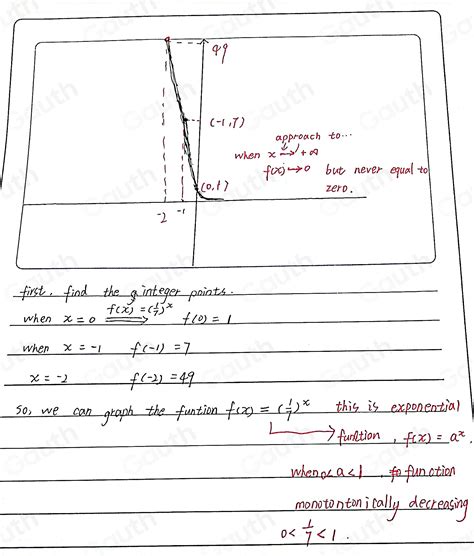 49
(-1,7)
approach to...
when x → +∞
f(x) → 0 but never equal to
zero.
(0,1)
-2 -1
first, find the 3 integer points.
when x = 0 f(x) = (1/7)^x ⟹ f(0) = 1
when x = -1 f(-1) = 7
x = -2 f(-2) = 49
so, we can graph the funtion f(x) = (1/7)^x this is exponential
funition, f(x) = a^x.
when 0<a<1, function
monotontonically decreasing
0 < 1/7 < 1.